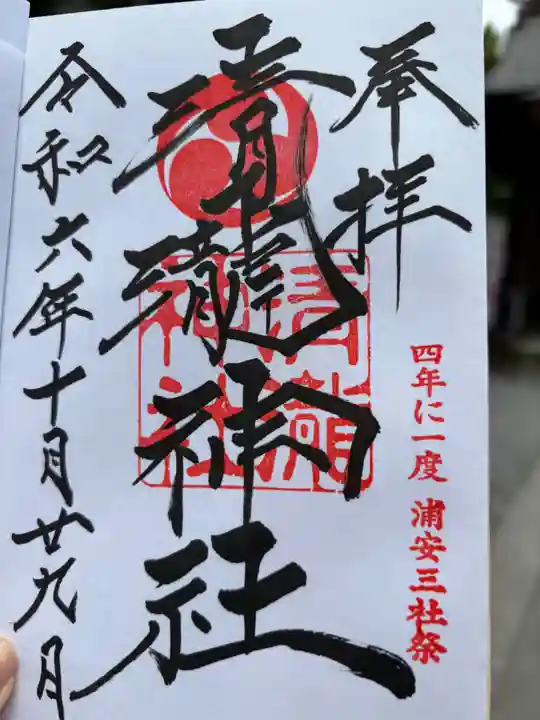 奉拝
清瀧神社
清瀧
神社
四年に一度 浦安三社祭
令和六年十月廿九日